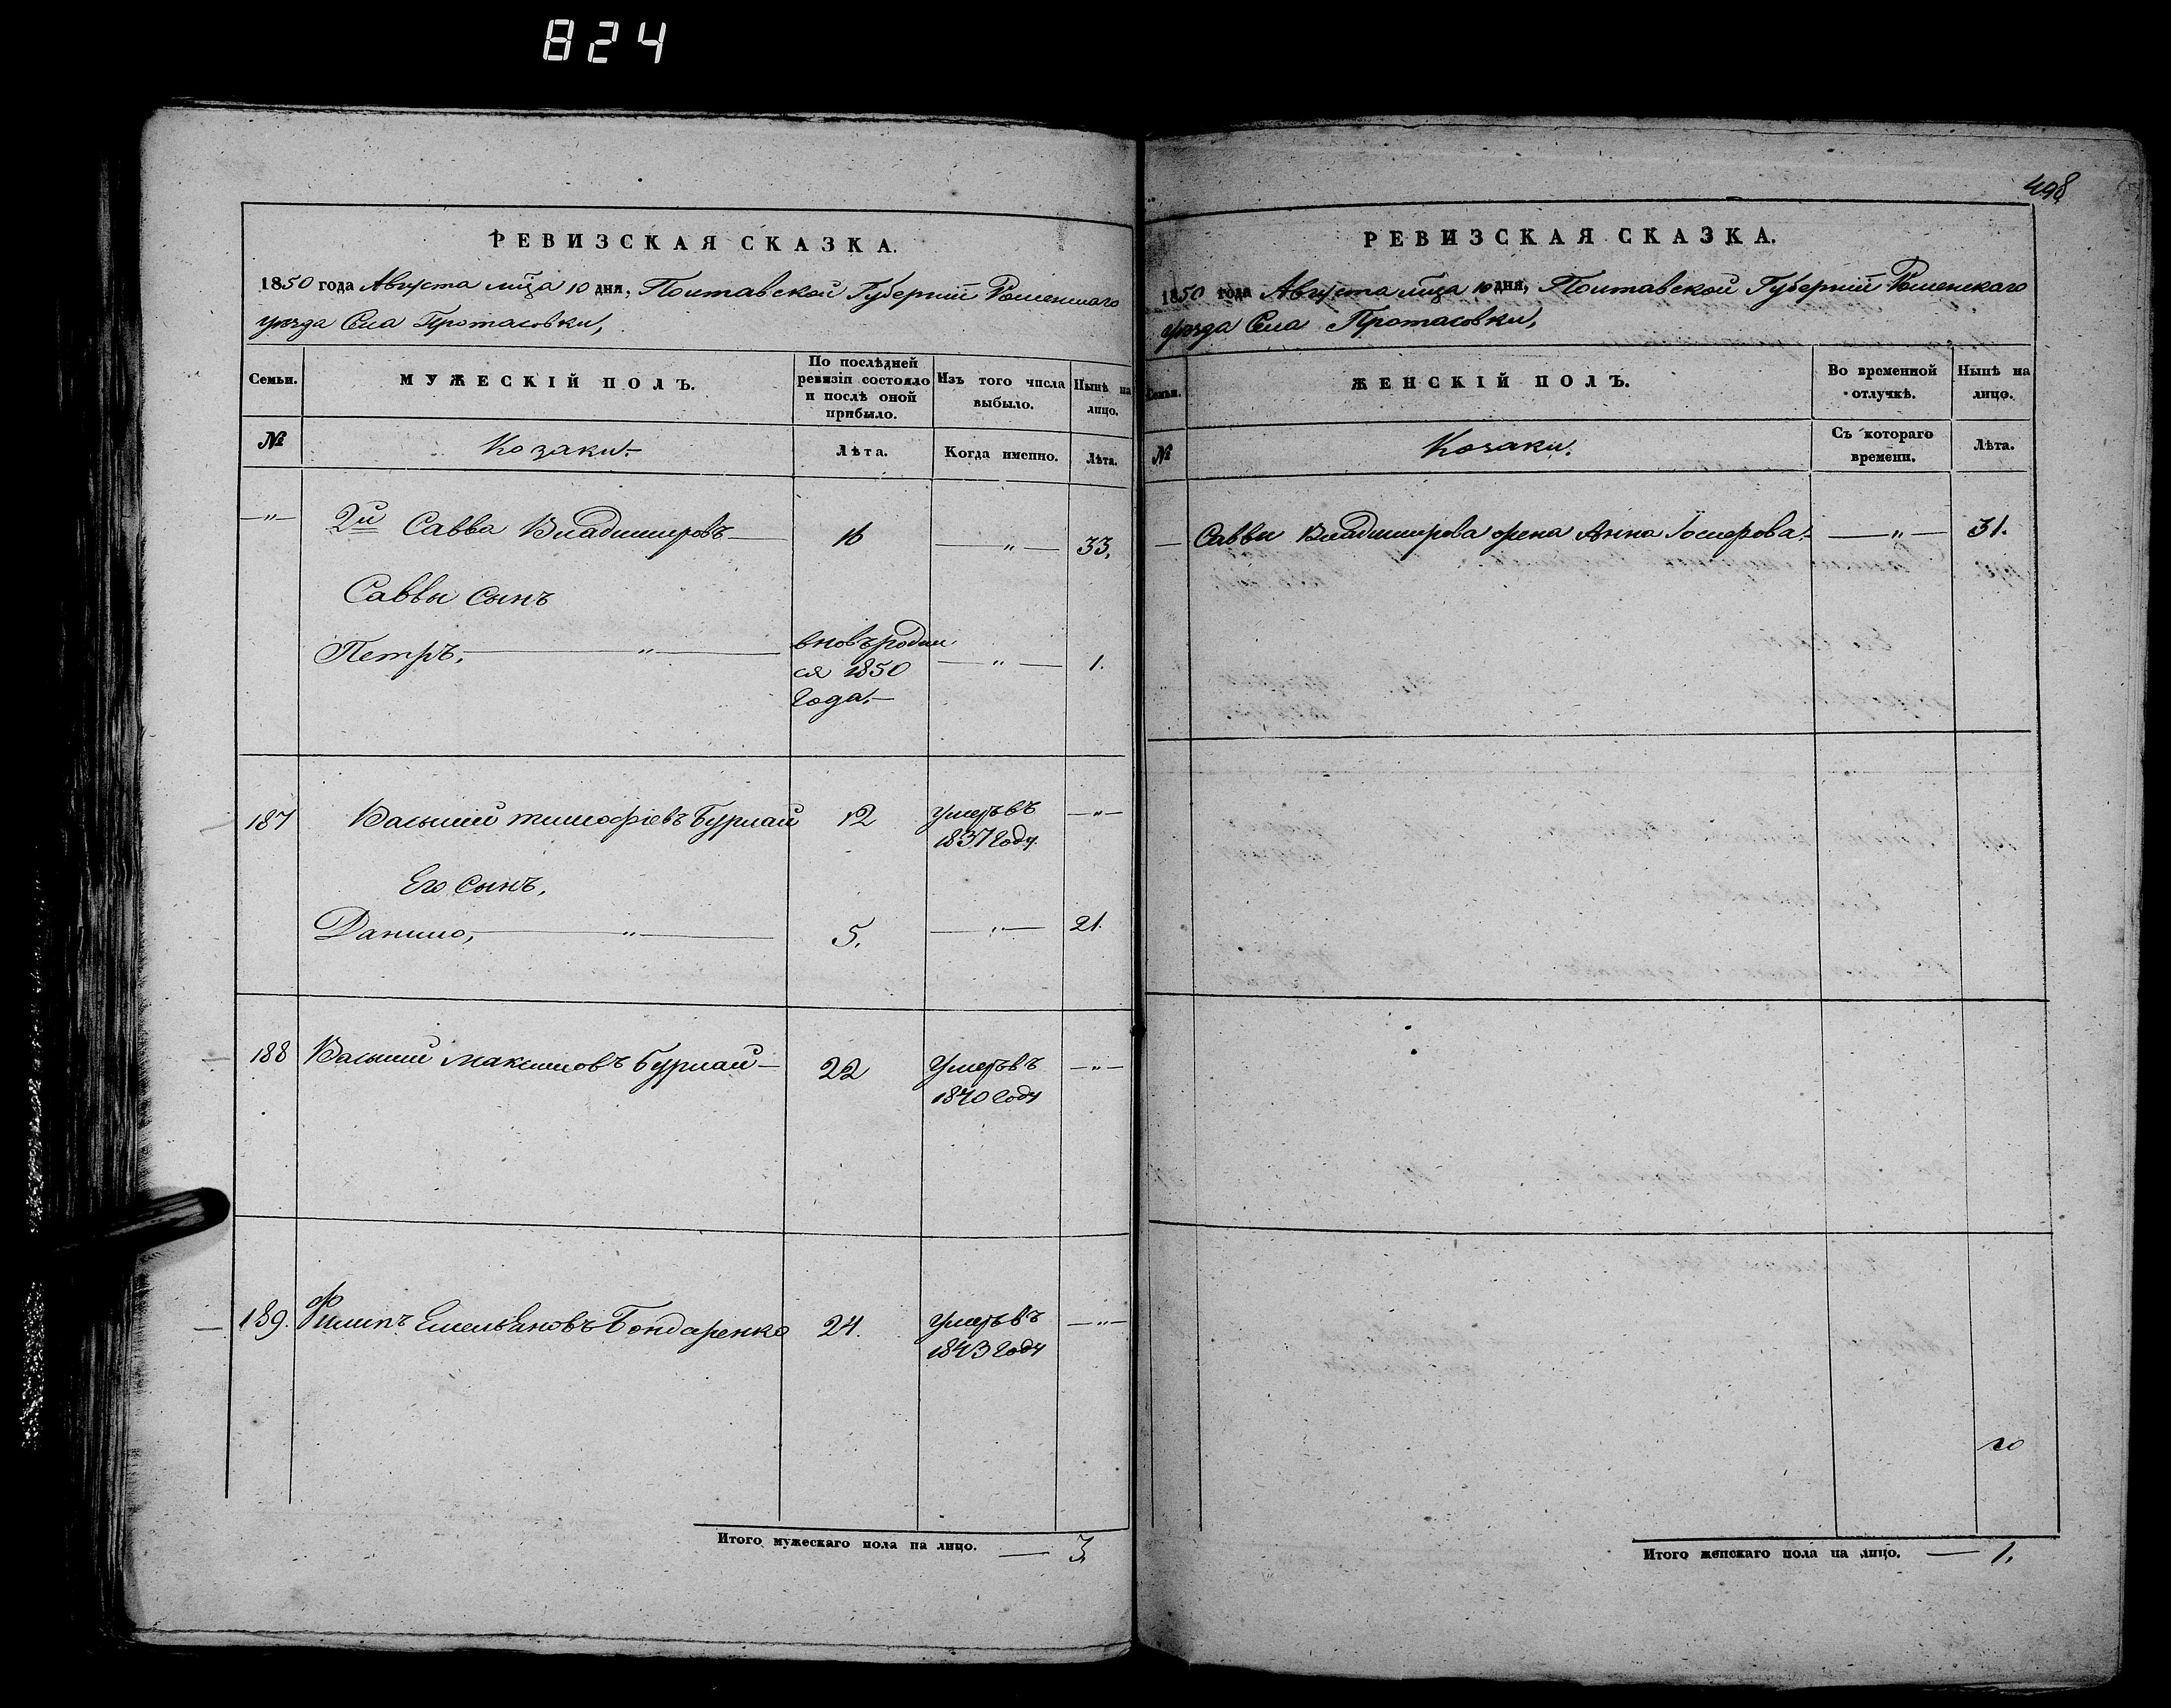 824
РЕВИЗСКАЯ СКАЗКА.
1850 года Августа мца 10 дня, Полтавской Губернiи Роменскаго
уѣзда Села Протасовки,
Семьи.
МУЖЕСКІЙ ПОЛЪ.
По послѣдней
ревизіи состояло
и послѣ оной
прибыло.
Изъ того числа
выбыло.
Нынѣ на
лицо.
№
Козаки.
Лѣта.
Когда именно.
Лѣта.
—"— 2й Савва Владимировъ — 16 —"— 33.
Саввы сынъ
Петръ. —"— вновь роди
ся 1850
года. —"— 1.
187 Василий тимофіевъ Бурлай 12 умеръ въ
1837 году —"—
Его сынъ,
Данило, —"— 5. —"— 21.
188 Василий максимовъ Бурлай — 22 умеръ въ
1840 году —"—
189. Филипъ Емельяновъ Бондаренко 24. умеръ въ
1843 году —"—
Итого мужескаго пола на лицо. — 3
498
РЕВИЗСКАЯ СКАЗКА.
1850 года Августа мца 10 дня, Полтавской Губернiи Роменскаго
уѣзда Села Протасовки,
Семьи.
ЖЕНСКІЙ ПОЛЪ.
Во временной
отлучкѣ.
Нынѣ на
лицо.
№
Козаки.
Съ котораго
времени.
Лѣта.
— Саввы Владимирова жена Анна —"— 31.
Итого женскаго пола на лицо. — 1.